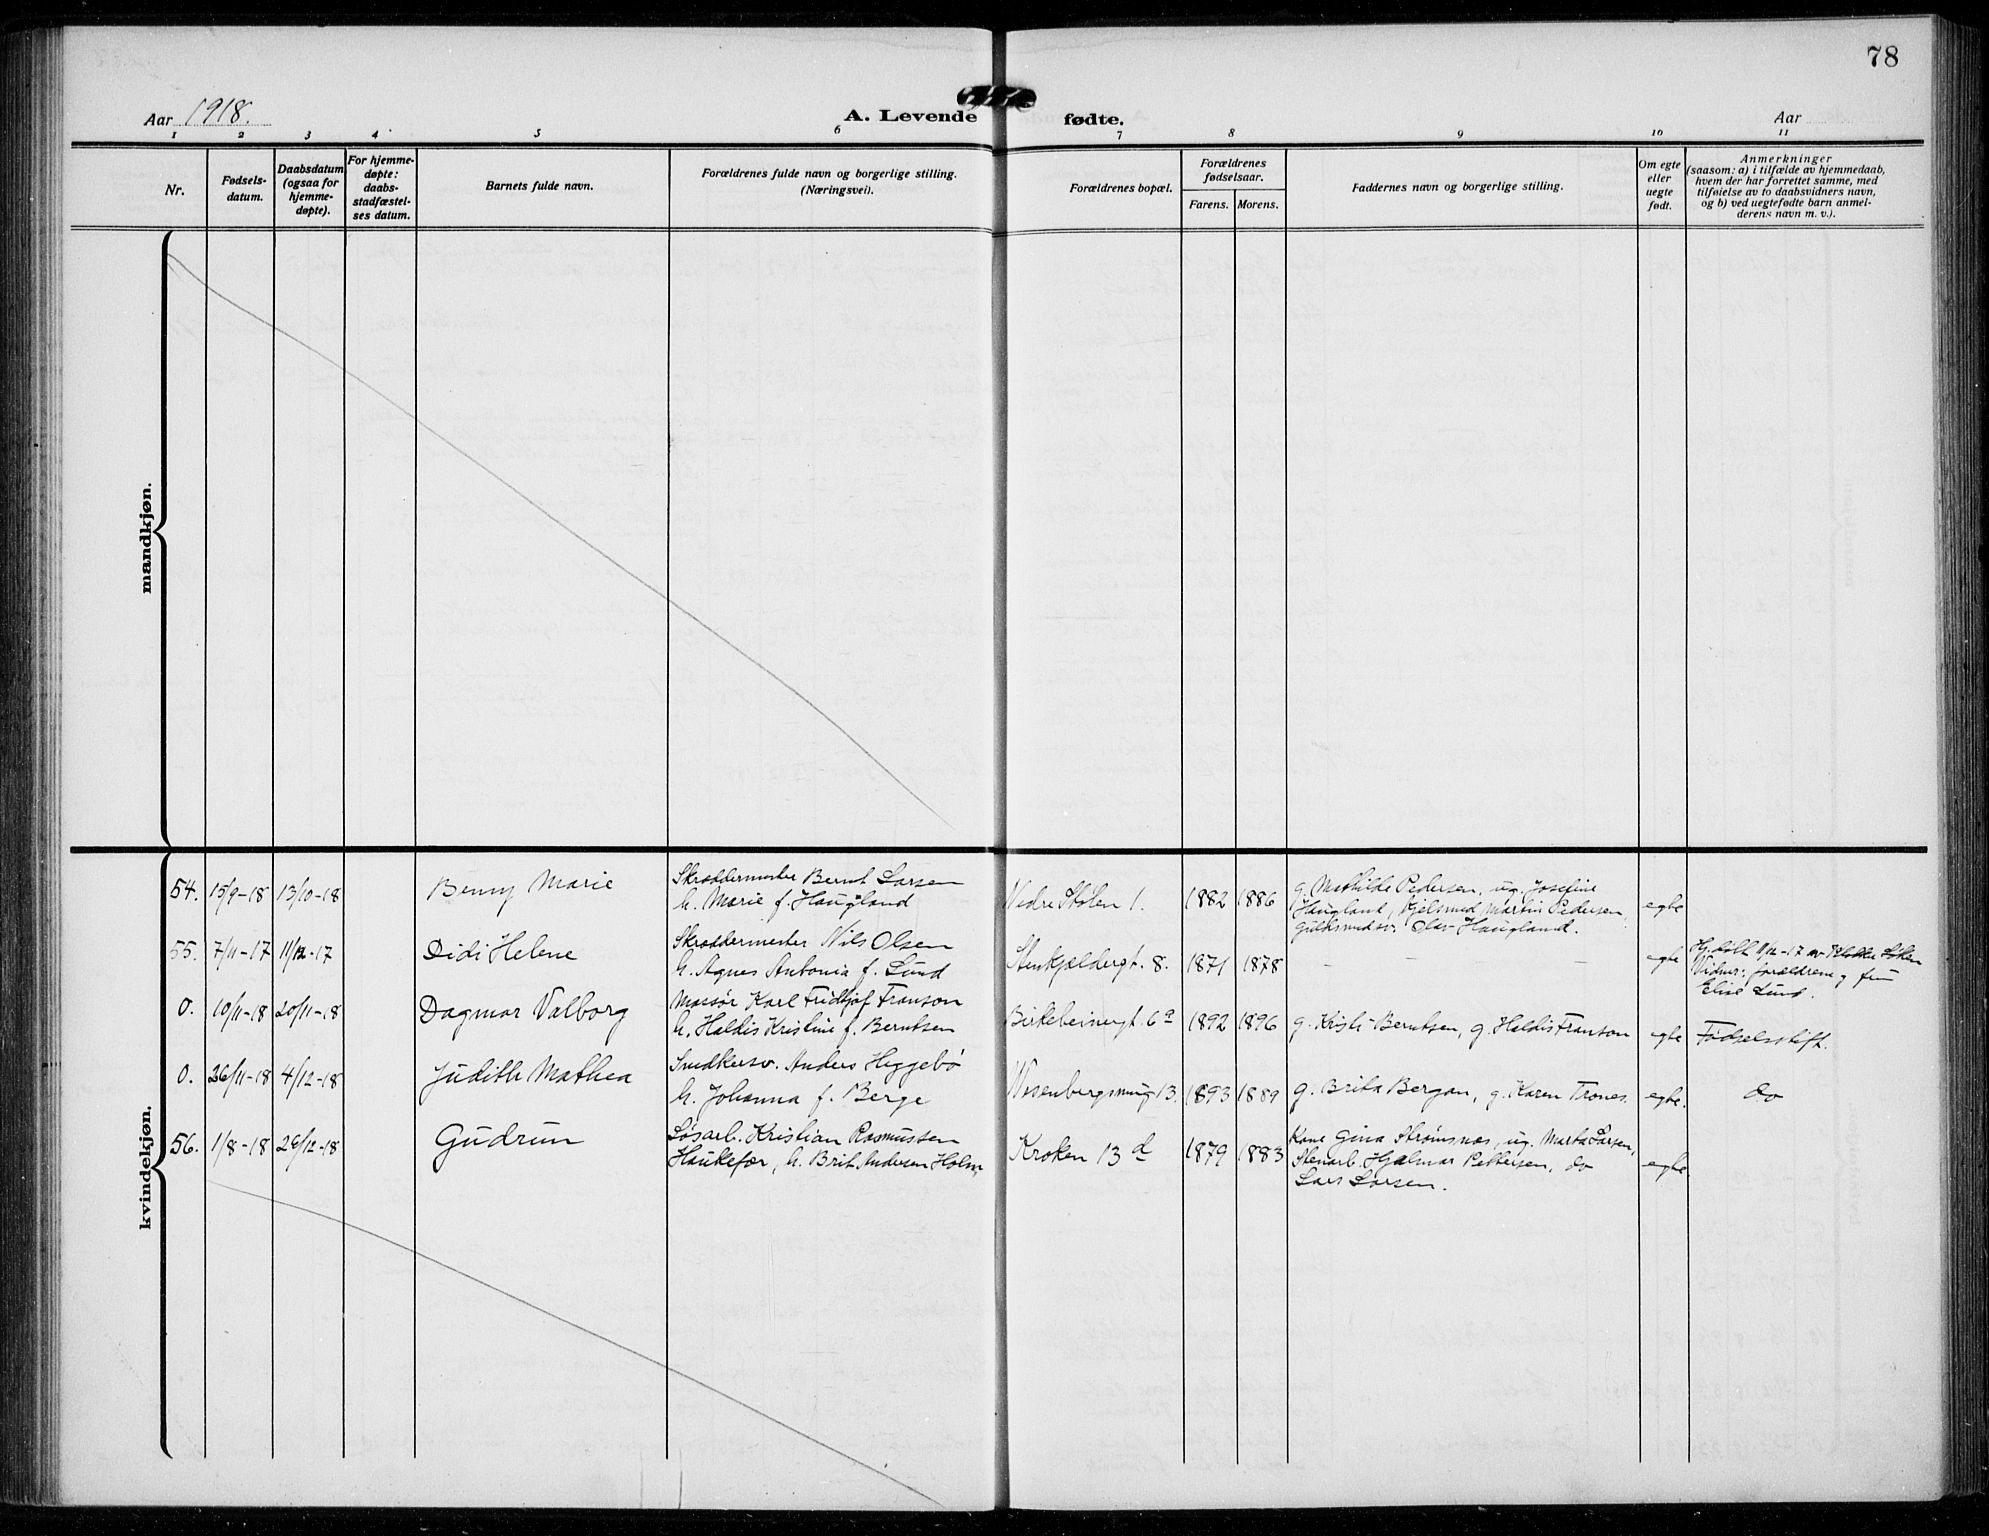 78
Aar 1918.
A. Levende fødte.
Aar
1 2 3 4 5 6 7 8 9 10 11
Nr.
Fødsels-
datum.
Daabsdatum
(ogsaa for
hjemme-
døpte).
For hjemme-
døpte:
daabs-
stadfæstel-
ses datum.
Barnets fulde navn.
Forældrenes fulde navn og borgerlige stilling.
(Næringsvei).
Forældrenes bopæl.
Forældrenes
fødselsaar.
Farens. Morens.
Faddernes navn og borgerlige stilling.
Om egte
eller
uegte
født.
Anmerkninger
(saasom: a) i tilfælde av hjemmedaab,
hvem der har forrettet samme, med
tilføielse av to daabsvidners navn,
og b) ved uegtefødte barn anmel-
derens navn m. v.).
mandkjøn.
kvindekjøn.
54. 15/9-18 13/10-18 Benny Marie
Skræddermester Bernt Larsen
h. Marie f. Haugland
Nedre Stølen 1. 1882 1886
g. Mathilde Pedersen, ug. Josefine
Haugland, Martin Pedersen,
Guldsmedsv. Olav Haugland.
egte
55. 7/11-17 11/12-17 Didi Helene
Skræddermester Nils Olsen
h. Agnes Antonia f. Lund
Stenkjeldergt. 8. 1871 1878 - - - egte
Hj. døbt 11/12-17 av
Vidner: forældrene og fru
Elise Lund.
0. 10/11-18 20/11-18 Dagmar Valborg
Massør Karl Fridtjof Franson
h. Haldis Kristine f. Berntsen
Birkebeinergt. 6a 1892 1896 g. Kristi Berntsen, g. Haldis Franson egte Fødselsstift.
0. 26/11-18 4/12-18 Judith Mathea
Snedkersv. Anders Heggebø
h. Johanna f. Berge
Wesenbergsmug 13. 1893 1889 g. Brita Bergan, g. Karen Trones. egte. do
56. 1/8-18 26/12-18 Gudrun
Løsarb. Kristian Rasmussen
Haukefær, h. Brit. Andersen Holm,
Kroken 13 d 1879 1883
Kone Gina Strømsnæs, ug. Marta Larsen,
Stenarb. Hjalmar Pettersen, do
Lars Larsen.
egte.